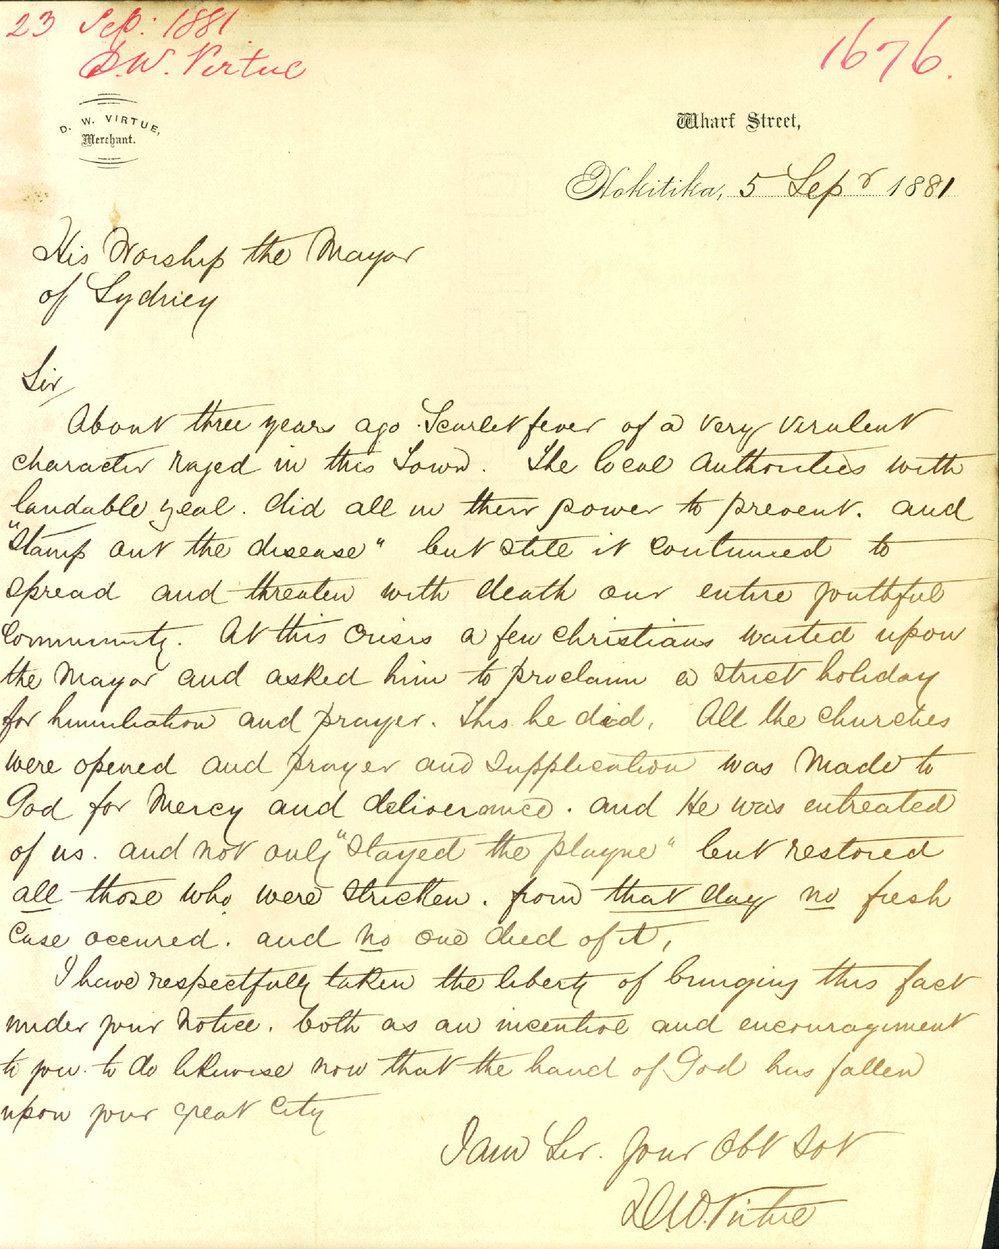 23 Sep: 1881
D.W. Virtue
1676.
D. W. VIRTUE,
Merchant.
Wharf Street,
Hokitika, 5 Sepr 1881
His Worship the Mayor
of Sydney
Sir,
About three years ago Scarlet fever of a very virulent
character raged in this Town. The local authorities with
laudable zeal. did all in their power to prevent. and
"Stamp out the disease" but still it continued to
spread and threaten with death our entire youthful
Community. At this Crisis a few Christians waited upon
the Mayor and asked him to proclaim a strict holiday
for humiliation and prayer. This he did. All the churches
were opened and prayer and Supplication was made to
God for Mercy and deliverance. and He was entreated
of us. and not only "Stayed the plague" but restored
all those who were stricken. from that day no fresh
Case occured. and no one died of it,
I have respectfully taken the liberty of bringing this fact
under your Notice. both as an incentive and encouragement
to you to do likewise now that the hand of God has fallen
upon your great City
I am Sir. Your Obt Svt
D.W. Virtue